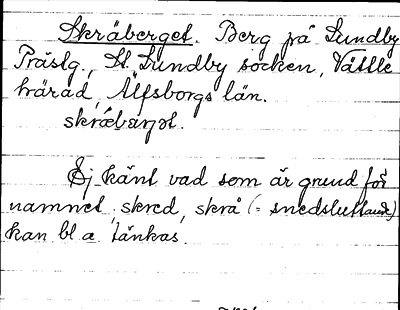 Skräberget. Berg på Lundby
Prästg., St. Lundby socken, Vättle
härad, Älfsborgs län.
skräbärjət.
Ej känt vad som är grund för
namnet, skred, skrå (= snedsluttande)
kan bl a tänkas.